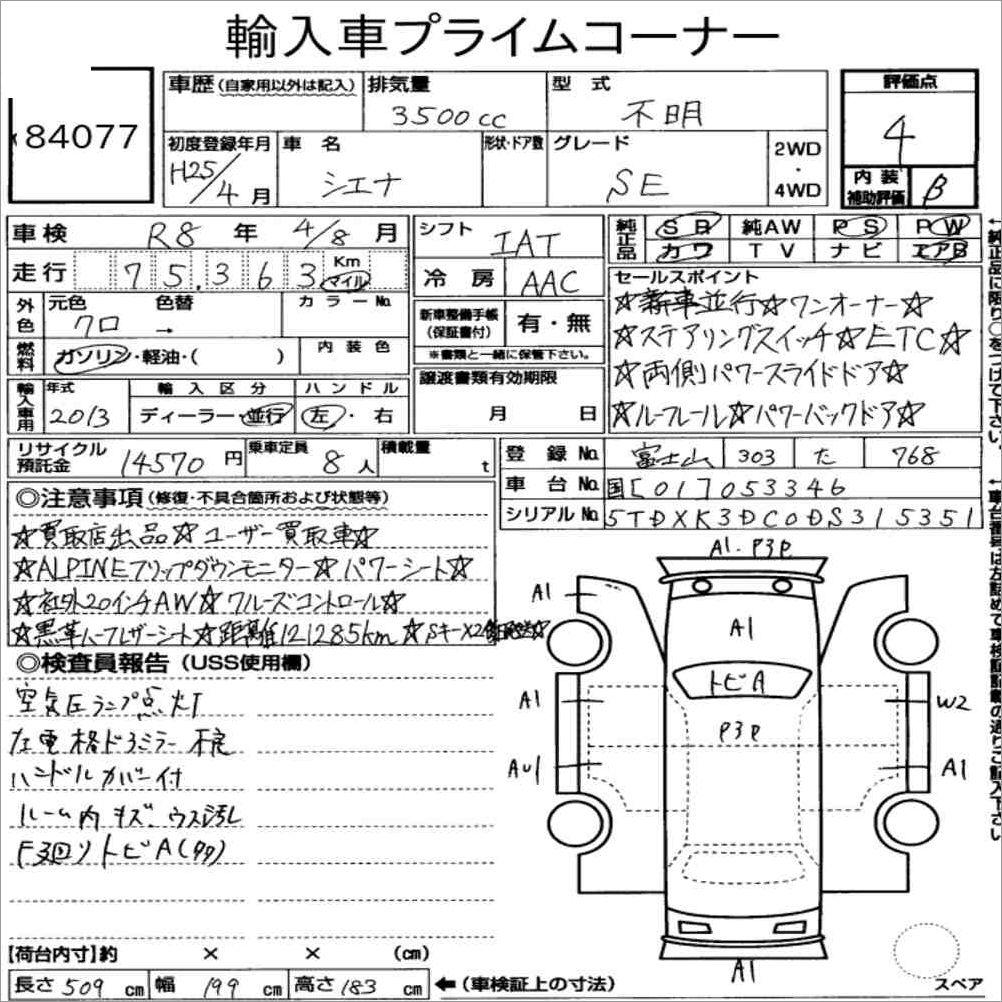 輸入車プライムコーナー
84077
車歴(自家用以外は記入) 排気量 3500cc 型式 不明 評価点 4
初度登録年月 H25/4月 車名 シエナ 形状・ドア数 グレード SE 2WD・4WD 内装補助評価 B
車検 R8年 4/8月 シフト IAT 純正品 SR 純AW PS PW
カワ TV ナビ エアB
走行 75,363 Km マイル 冷房 AAC
外色 元色 クロ 色替 → カラーNo. 新車整備手帳(保証書付) 有・無
※書類と一緒に保管下さい。
燃料 ガソリン・軽油・( ) 内装色
輸入車用 年式 2013 輸入区分 ディーラー・並行 ハンドル 左・右 譲渡書類有効期限 月 日
セールスポイント
☆新車並行☆ワンオーナー☆
☆ステアリングスイッチ☆ETC☆
☆両側パワースライドドア☆
☆ルーフレール☆パワーバックドア☆
リサイクル預託金 14570円 乗車定員 8人 積載量 t
登録No. 富士山 303 た 768
車台No. 国[01]053346
シリアルNo. 5TDXK3DC0DS315351
◎注意事項(修復・不具合箇所および状態等)
☆買取店出品☆ユーザー買取車☆
☆ALPINEフリップダウンモニター☆パワーシート☆
☆社外20インチAW☆クルーズコントロール☆
☆黒革ハーフレザーシート☆距離121285km☆Sキー×2
◎検査員報告(USS使用欄)
空気圧ランプ点灯
左電格ドアミラー不良
ハンドルカバー付
ルーム内キズ ウス汚れ
F3回リトビA
A1・P3P
A1
A1
トビA
A1
P3P
W2
AU1
A1
A1
スペア
【荷台内寸】約 × × (cm)
長さ 509 cm 幅 199 cm 高さ 183 cm ←(車検証上の寸法)
←純正品に限り○をつけて下さい。
←車台番号は方詰めて車検証記載の通りご記入下さい